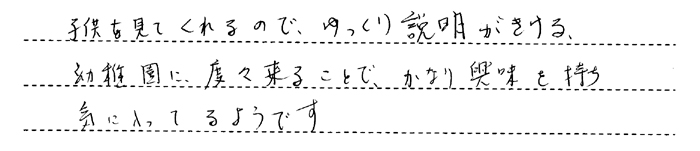 子供を見てくれるので、ゆっくり説明がきける、
幼稚園に、度々来ることで、かなり興味を持ち
気に入ってるようです